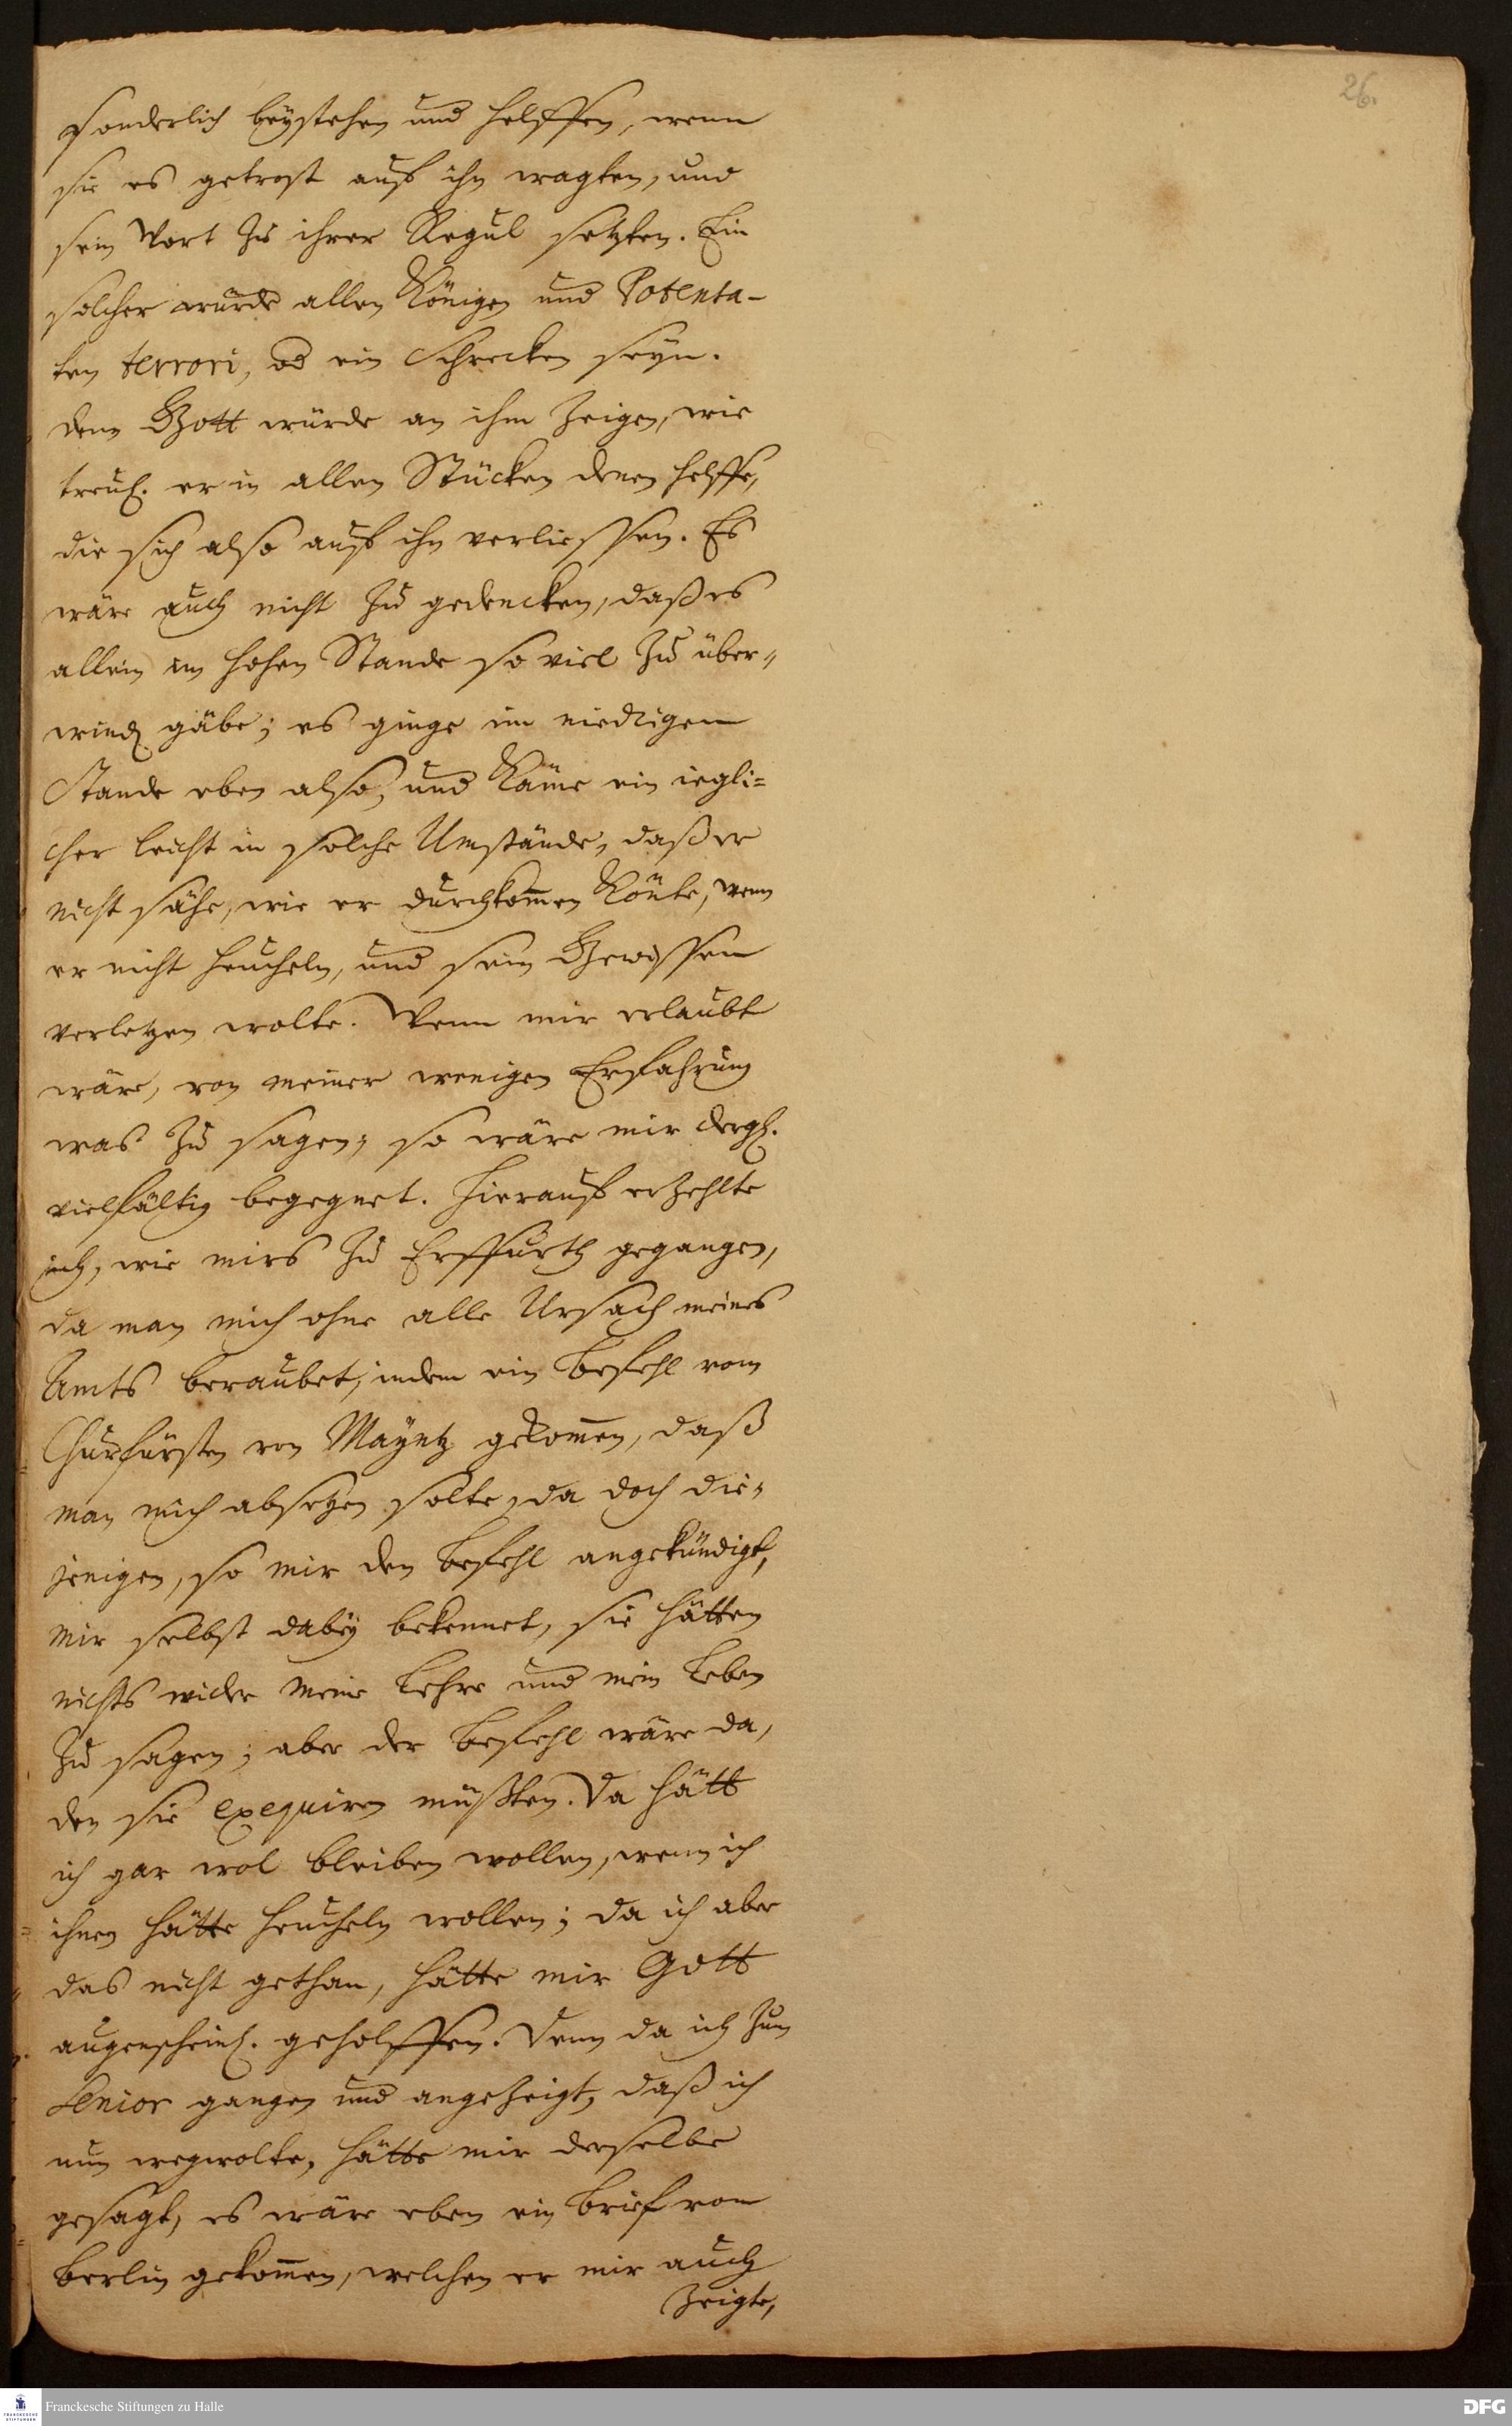 26.
sonderlich beystehen und helffen, wenn
sie es getrost auf ihn wagten, und
sein Wort zu ihrer Regul setzten. Ein
solcher würde allen Königen und Potenta-
ten terrori, od ein Schrecken seyn.
denn Gott würde an ihm zeigen, wie
treul. er in allen Stücken denen helffe,
die sich also auf ihn verliessen. Es
wäre auch nicht zu gedencken, daß es
allein im hohen Stande so viel zu über-
wind gäbe; es ginge im niedrigem
Stande eben also, und käme ein iegli-
cher leicht in solche Umstände, daß er
nicht sähe, wie er durchkom̄en kön̄te, wenn
er nicht heucheln, und sein Gewissen
verletzen wolte. Wenn mir erlaubt
wäre, von meiner wenigen Erfahrung
was zu sagen, so wäre mir dergl.
vielfältig begegnet. Hierauf erzehlte
ich, wie mirs zu Erffurth gegangen,
da man mich ohne alle Ursach meines
Amts beraubet, indem ein Befehl vom
Churfürsten von Mayntz gekom̄en, daß
man mich absetzen solte, da doch die-
jenigen, so mir den Befehl angekündigt,
mir selbst dabey bekennet, sie hätten
nichts wider meine Lehre und mein Leben
zu sagen; aber der Befehl wäre da,
den sie exequiren müßten. Da hätt
ich gar wol bleiben wollen, wenn ich
ihnen hätte heucheln wollen; da ich aber
das nicht gethan, hätte mir Gott
augenscheinl. geholffen. Denn da ich zum
Senior gangen und angezeigt, daß ich
nun wegwolte, hätte mir derselbe
gesagt, es wäre eben ein Brief von
Berlin gekom̄en, welchen er mir auch
zeigte,
Franckesche Stiftungen zu Halle
DFG